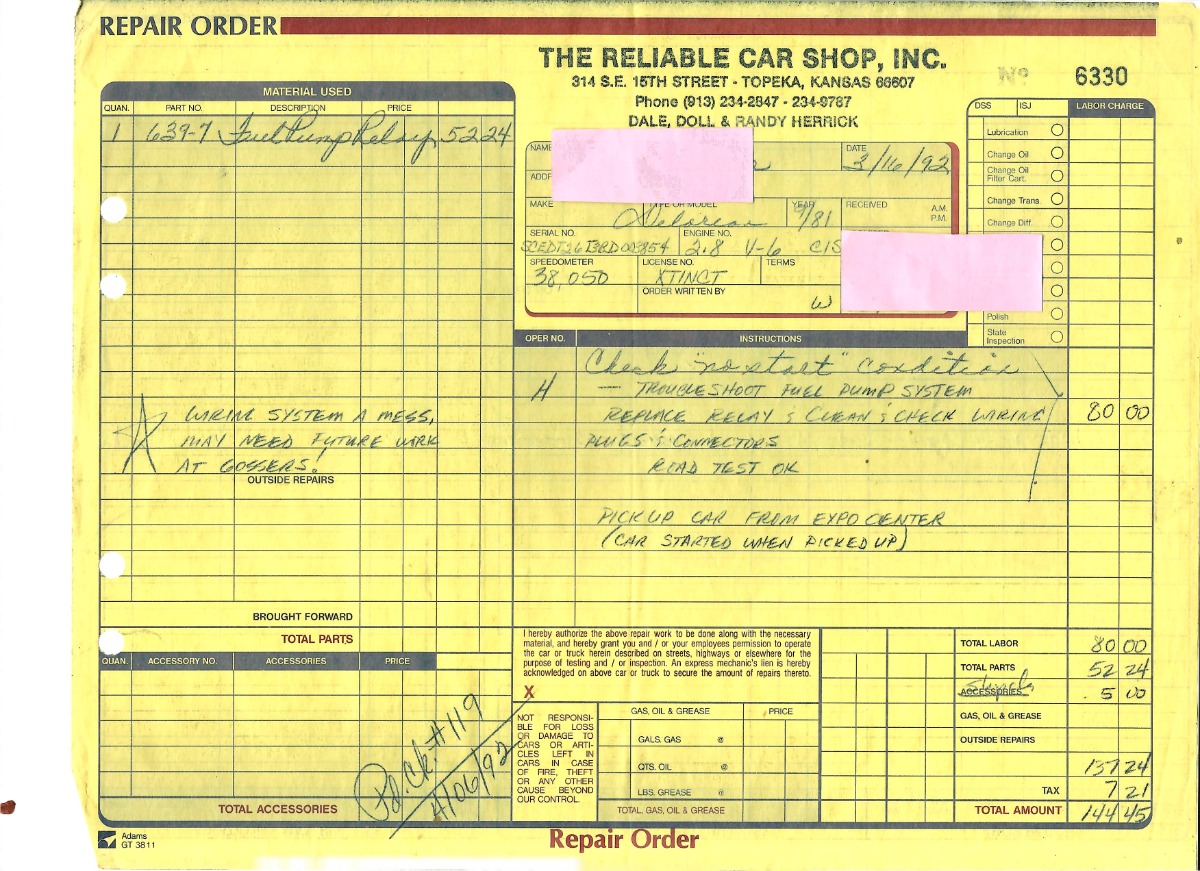 REPAIR ORDER
THE RELIABLE CAR SHOP, INC.
314 S.E. 15TH STREET - TOPEKA, KANSAS 66607
Phone (913) 234-2847 - 234-9787
DALE, DOLL & RANDY HERRICK
No 6330
MATERIAL USED
QUAN. PART NO. DESCRIPTION PRICE
1 639-7 Fuel Pump Relay 52 24
WIRING SYSTEM A MESS,
MAY NEED FUTURE WORK
AT GOSSERS!
OUTSIDE REPAIRS
BROUGHT FORWARD
TOTAL PARTS
NAME
DATE
3/16/92
ADDR
MAKE
TYPE OR MODEL
Delorean
YEAR
9/81
RECEIVED
A.M.
P.M.
SERIAL NO.
ENGINE NO.
2.8 V-6 CIS
SPEEDOMETER
38,050
LICENSE NO.
XTINCT
TERMS
ORDER WRITTEN BY
W
DSS ISJ LABOR CHARGE
Lubrication
Change Oil
Change Oil
Filter Cart.
Change Trans.
Change Diff.
Polish
State
Inspection
OPER NO. INSTRUCTIONS
Check "no start" condition
H — TROUBLESHOOT FUEL PUMP SYSTEM
REPLACE RELAY & CLEAN & CHECK WIRING 80 00
PLUGS & CONNECTORS
ROAD TEST OK
PICK UP CAR FROM EXPO CENTER
(CAR STARTED WHEN PICKED UP)
QUAN. ACCESSORY NO. ACCESSORIES PRICE
Pd. Ck. # 119
4/06/92
TOTAL ACCESSORIES
I hereby authorize the above repair work to be done along with the necessary
material, and hereby grant you and / or your employees permission to operate
the car or truck herein described on streets, highways or elsewhere for the
purpose of testing and / or inspection. An express mechanic's lien is hereby
acknowledged on above car or truck to secure the amount of repairs thereto.
X
NOT RESPONSI-
BLE FOR LOSS
OR DAMAGE TO
CARS OR ARTI-
CLES LEFT IN
CARS IN CASE
OF FIRE, THEFT
OR ANY OTHER
CAUSE BEYOND
OUR CONTROL.
GAS, OIL & GREASE PRICE
GALS. GAS @
QTS. OIL @
LBS. GREASE @
TOTAL GAS, OIL & GREASE
TOTAL LABOR 80 00
TOTAL PARTS 52 24
ACCESSORIES 5 00
GAS, OIL & GREASE
OUTSIDE REPAIRS
137 24
TAX 7 21
TOTAL AMOUNT 144 45
Adams
GT 3811
Repair Order